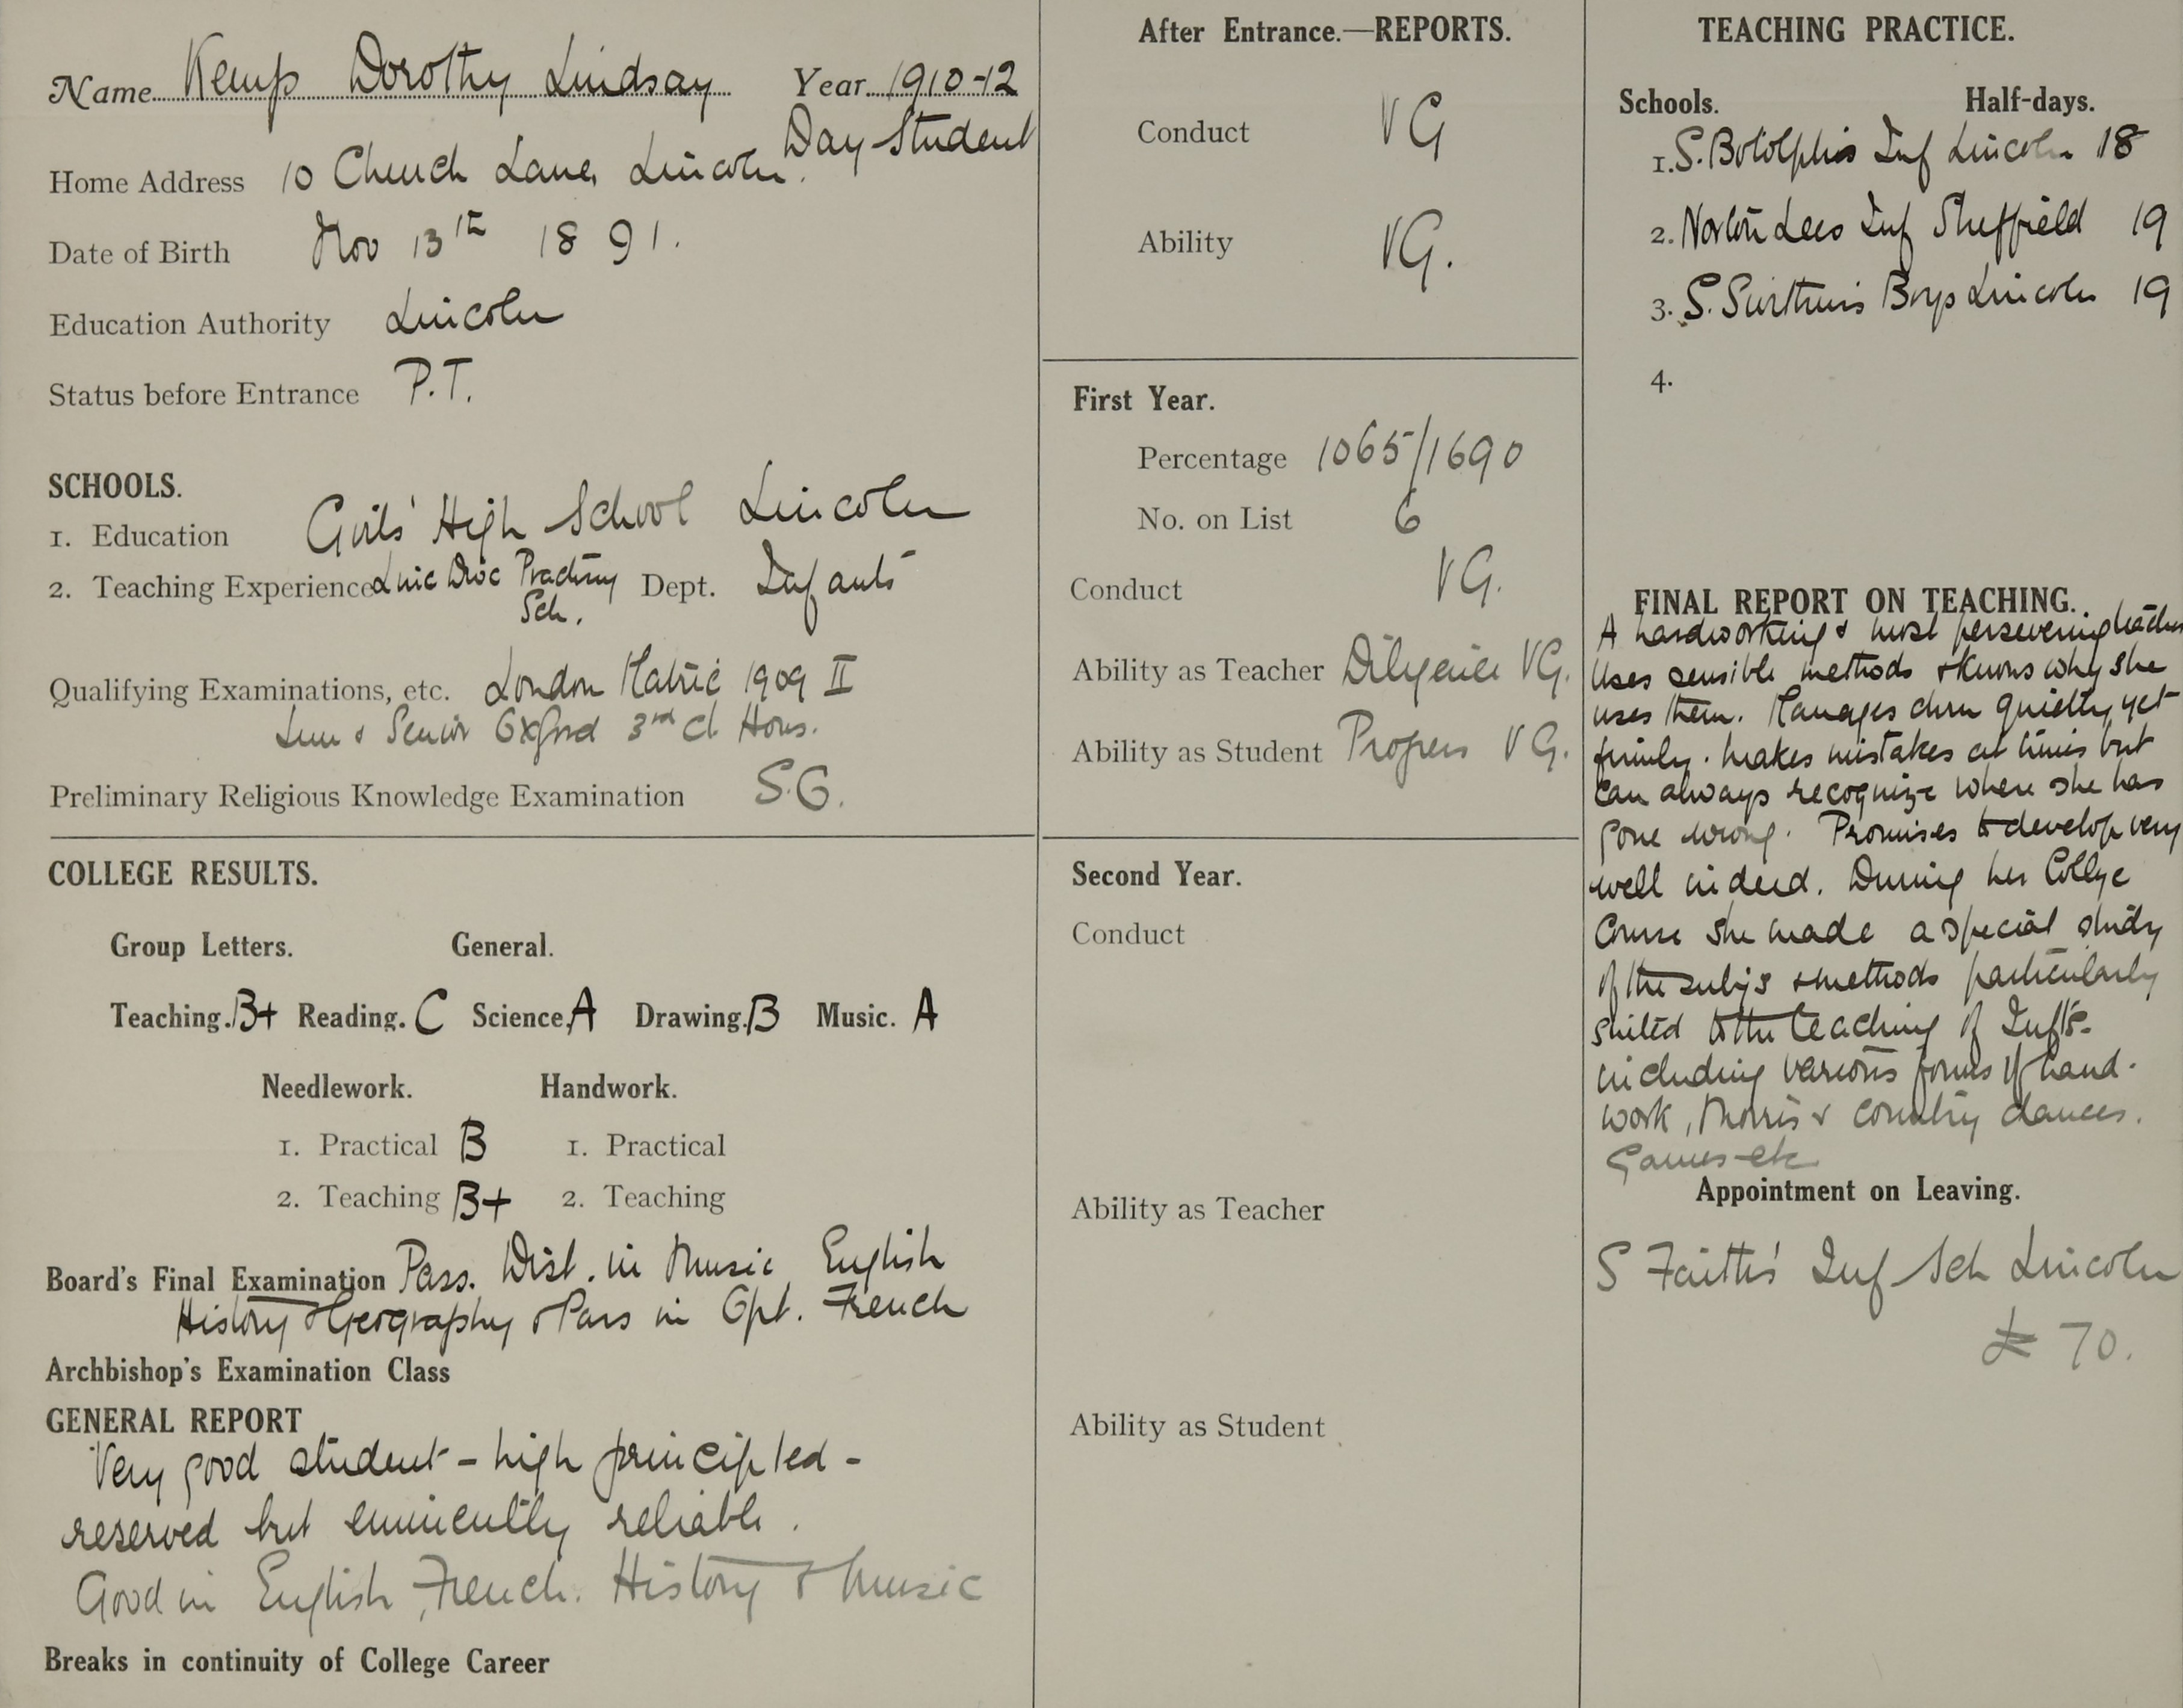 Name Kemp Dorothy Lindsay Year 1910-12
Day Student
Home Address 10 Church Lane, Lincoln.
Date of Birth Nov 13th 1891.
Education Authority Lincoln
Status before Entrance P.T.
SCHOOLS.
1. Education Girls' High School Lincoln
2. Teaching Experience Linc Dioc Practising Dept. Infants
Sch.
Qualifying Examinations, etc. London Matric 1909 II
Senior Oxford 3rd Cl Hons.
Preliminary Religious Knowledge Examination S.G.
COLLEGE RESULTS.
Group Letters. General.
Teaching. B+ Reading. C Science. A Drawing. B Music. A
Needlework. Handwork.
1. Practical B 1. Practical
2. Teaching B+ 2. Teaching
Board's Final Examination Pass. Dist. in Music English
History & Geography & Pass in Opt. French
Archbishop's Examination Class
GENERAL REPORT
Very good student - high principled -
reserved but eminently reliable.
Good in English, French. History & Music
Breaks in continuity of College Career
After Entrance.—REPORTS.
Conduct VG
Ability VG.
First Year.
Percentage 1065/1690
No. on List 6
Conduct VG.
Ability as Teacher Diligence VG.
Ability as Student Progress VG.
Second Year.
Conduct
Ability as Teacher
Ability as Student
TEACHING PRACTICE.
Schools. Half-days.
1. S. Botolph's Inf Lincoln 18
2. Norton Lees Inf Sheffield 19
3. S. Swithin's Boys Lincoln 19
4.
FINAL REPORT ON TEACHING.
A hardworking & most persevering teacher
Uses sensible methods & knows why she
uses them. Manages chrn quietly, yet
firmly. makes mistakes at times but
can always recognize where she has
gone wrong. Promises to develop very
well indeed. During her College
Course she made a special study
of the subjs & methods particularly
suited to the teaching of Infts.
including various forms of hand-
work, Morris & country dances.
Games etc
Appointment on Leaving.
S Faith's Inf Sch Lincoln
£70.